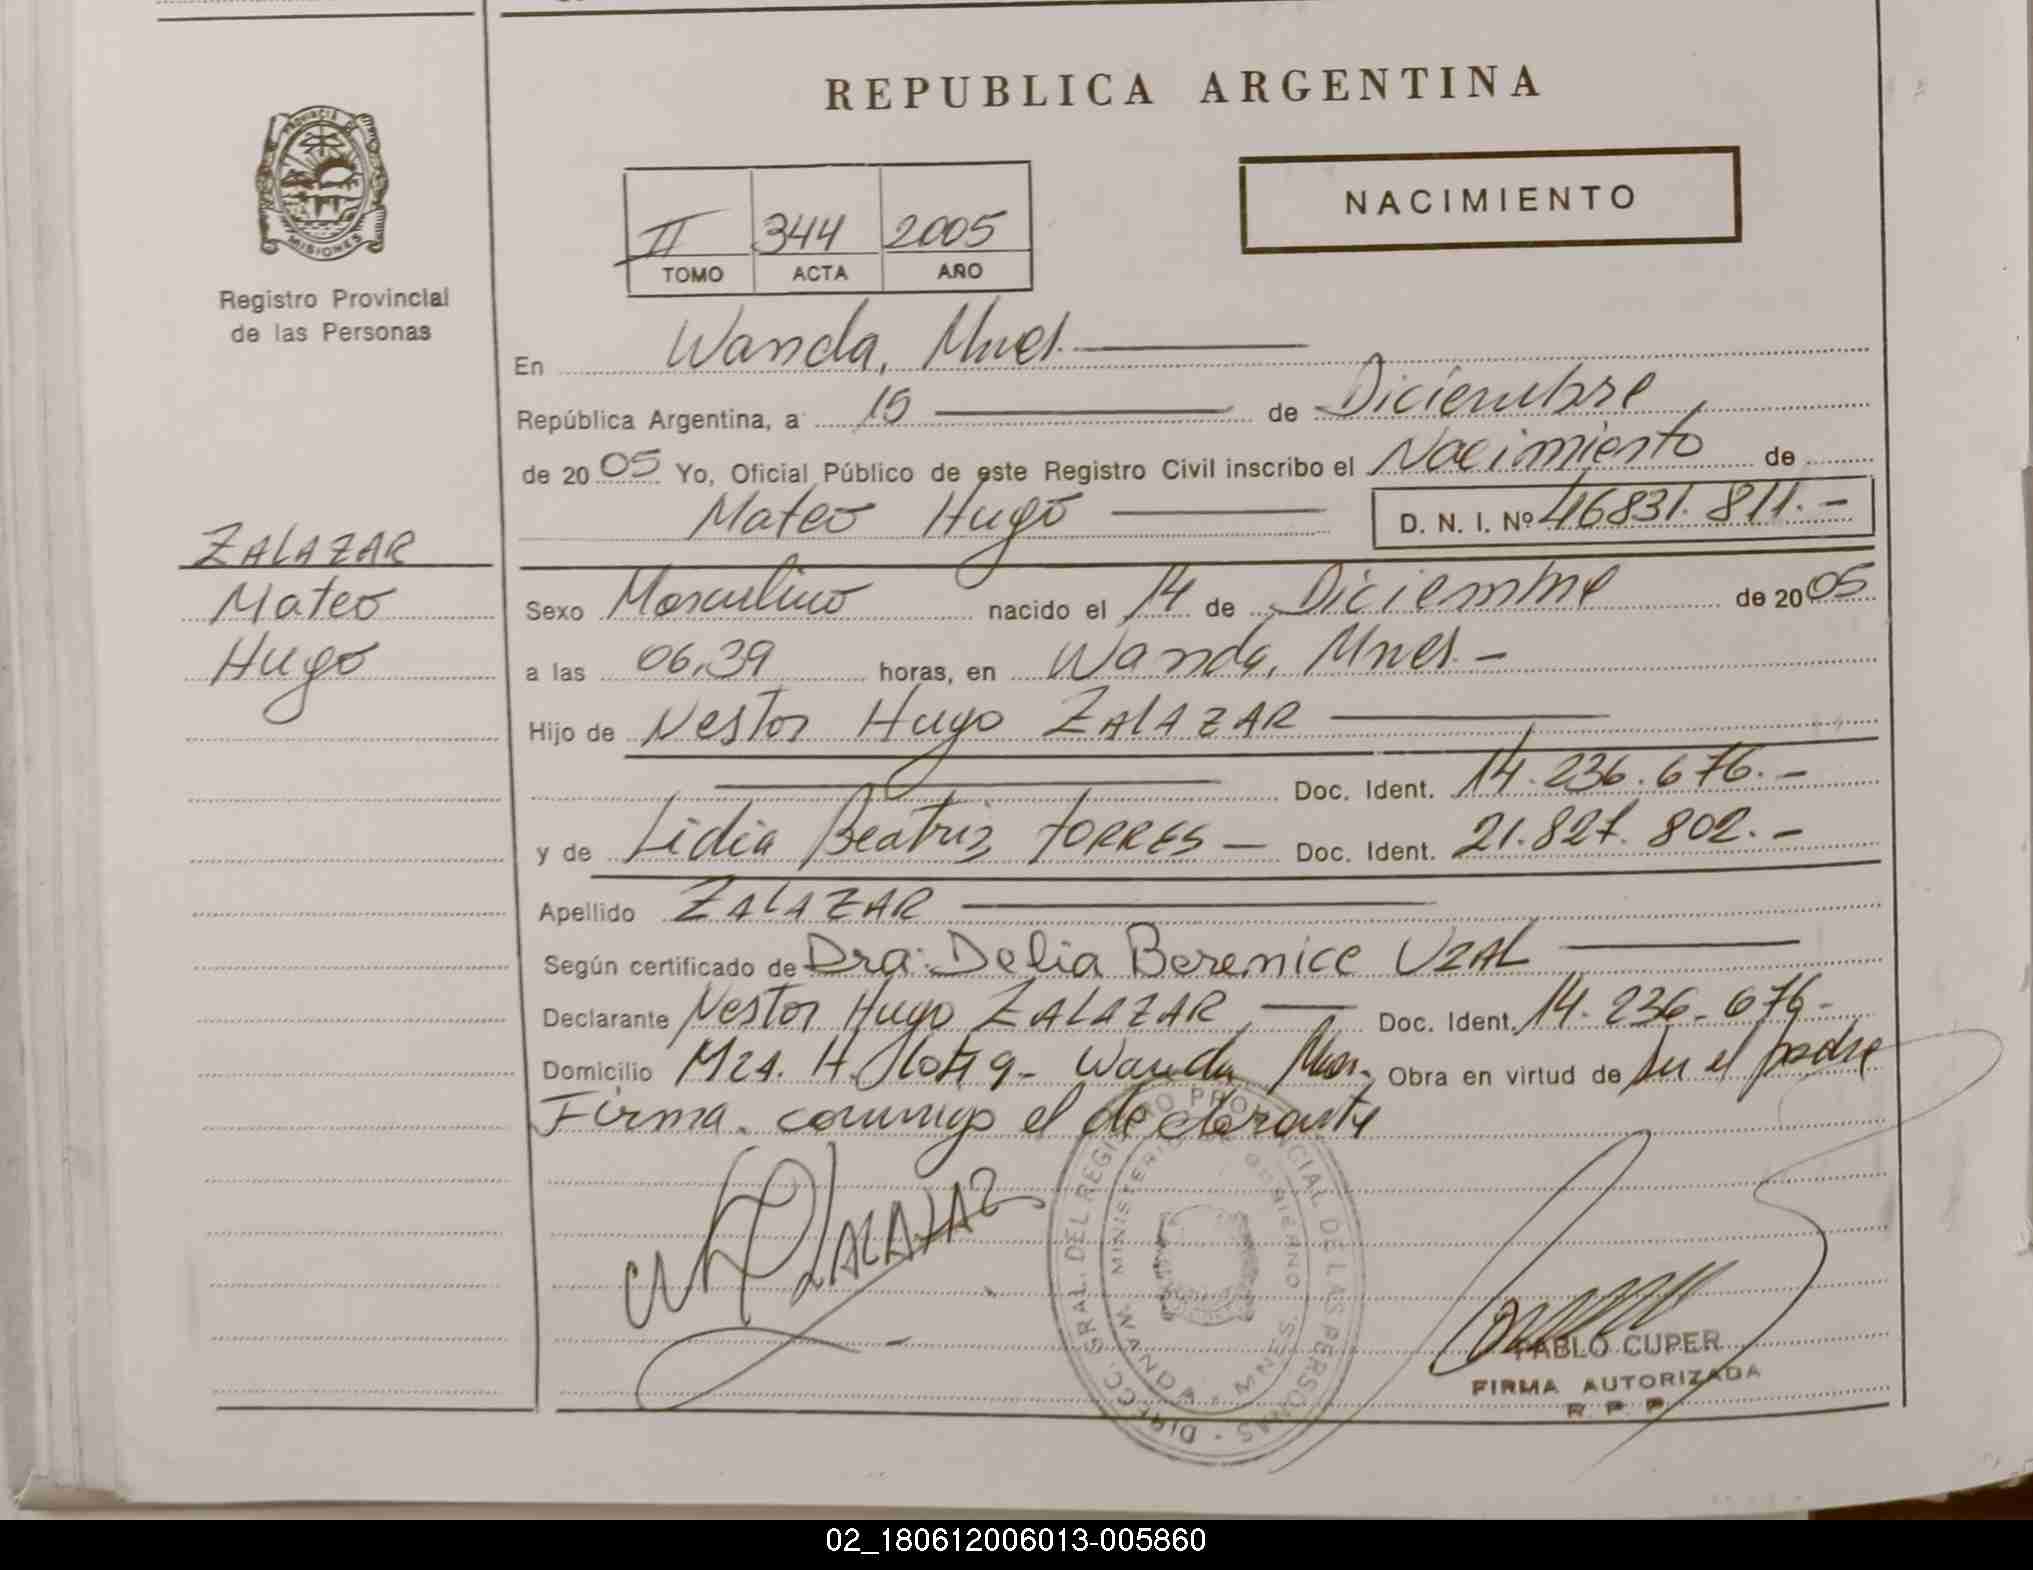 REPUBLICA ARGENTINA
PROVINCIA DE MISIONES
Registro Provincial
de las Personas
NACIMIENTO
II 344 2005
TOMO ACTA AÑO
En Wanda, Mnes.
República Argentina, a 15 de Diciembre
de 2005 Yo, Oficial Público de este Registro Civil inscribo el Nacimiento de
Mateo Hugo D. N. I. Nº 46831.811.-
ZALAZAR
Mateo
Hugo
Sexo Masculino nacido el 14 de Diciembre de 2005
a las 06,39 horas, en Wanda, Mnes.-
Hijo de Nestor Hugo ZALAZAR
Doc. Ident. 14.236.676.-
y de Lidia Beatriz TORRES - Doc. Ident. 21.827.802.-
Apellido ZALAZAR
Según certificado de Dra. Delia Berenice UZAL
Declarante Nestor Hugo ZALAZAR Doc. Ident. 14.236.676-
Domicilio Mza. H. 9- Wanda Mnes. Obra en virtud de ser el padre
Firma conmigo el declarante
ZALAZAR
DIRECC. GRAL. DEL REGISTRO PROVINCIAL DE LAS PERSONAS
MINISTERIO DE GOBIERNO
WANDA - MNES.
PABLO CUPER
FIRMA AUTORIZADA
R. P. P.
02_180612006013-005860